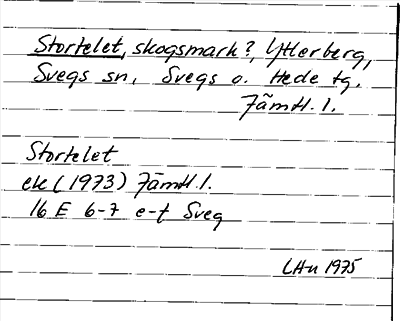 Stortelet, skogsmark?, Ytterberg,
Svegs sn, Svegs o. Hede tg.
Jämtl. l.
Stortelet
ek (1973) Jämtl. l.
16 E 6-7 e-f Sveg
LHn 1975